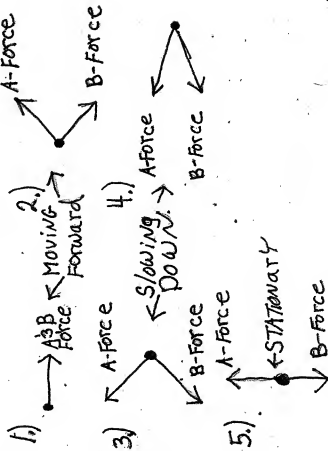 1.)
A&B
Force
MOVING
Forward
2.)
A-Force
B-Force
3.)
A-Force
B-Force
Slowing
DOWN.
4.)
A-Force
B-Force
5.)
A-Force
STATIONARY
B-Force